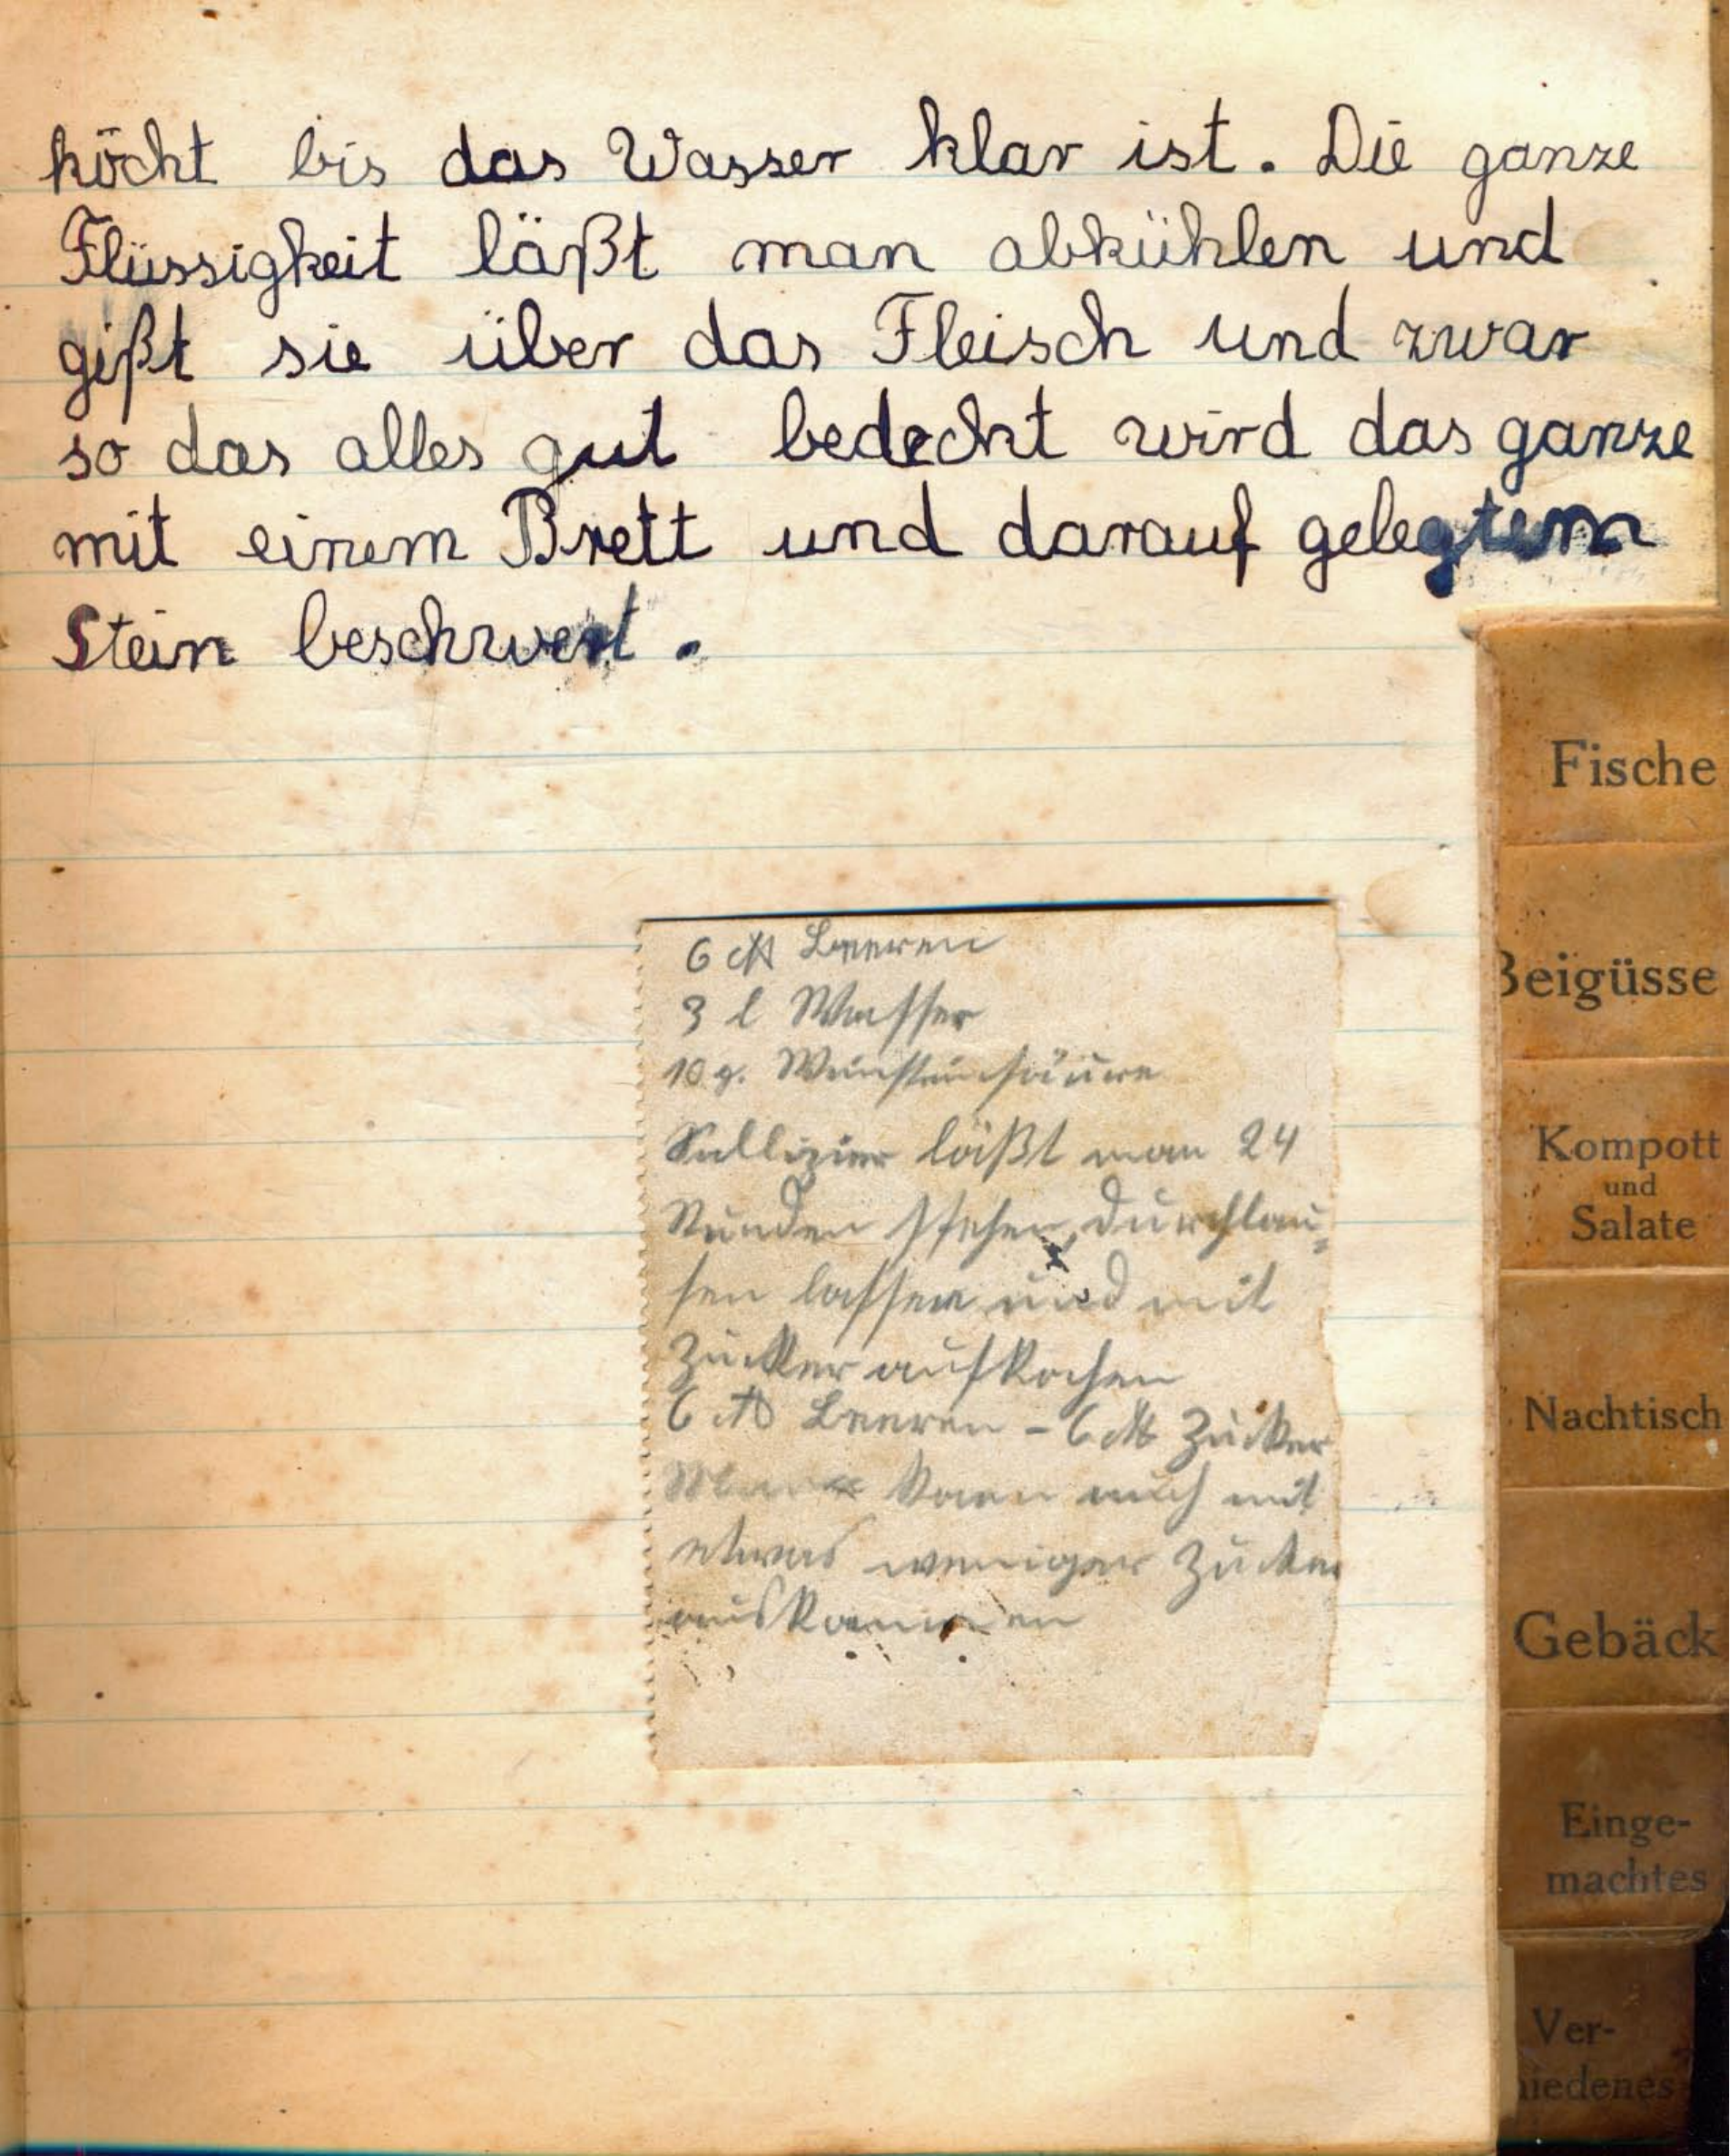 köcht bis das Wasser klar ist. Die ganze
Flüssigkeit läßt man abkühlen und
gißt sie über das Fleisch und zwar
so das alles gut bedeckt wird das ganze
mit einem Brett und darauf gelegtem
Stein beschwert.
6 ℔ Beeren
3 l Wasser
10 g. Weinsteinsäure
läßt man 24
Stunden stehen, durchlau-
fen lassen und mit
Zucker aufkochen
6 ℔ Beeren - 6 ℔ Zucker
Man kann auch mit
etwas weniger Zucker
auskommen
Fische
Beigüsse
Kompott
und
Salate
Nachtisch
Gebäck
Einge-
machtes
Ver-
hiedenes